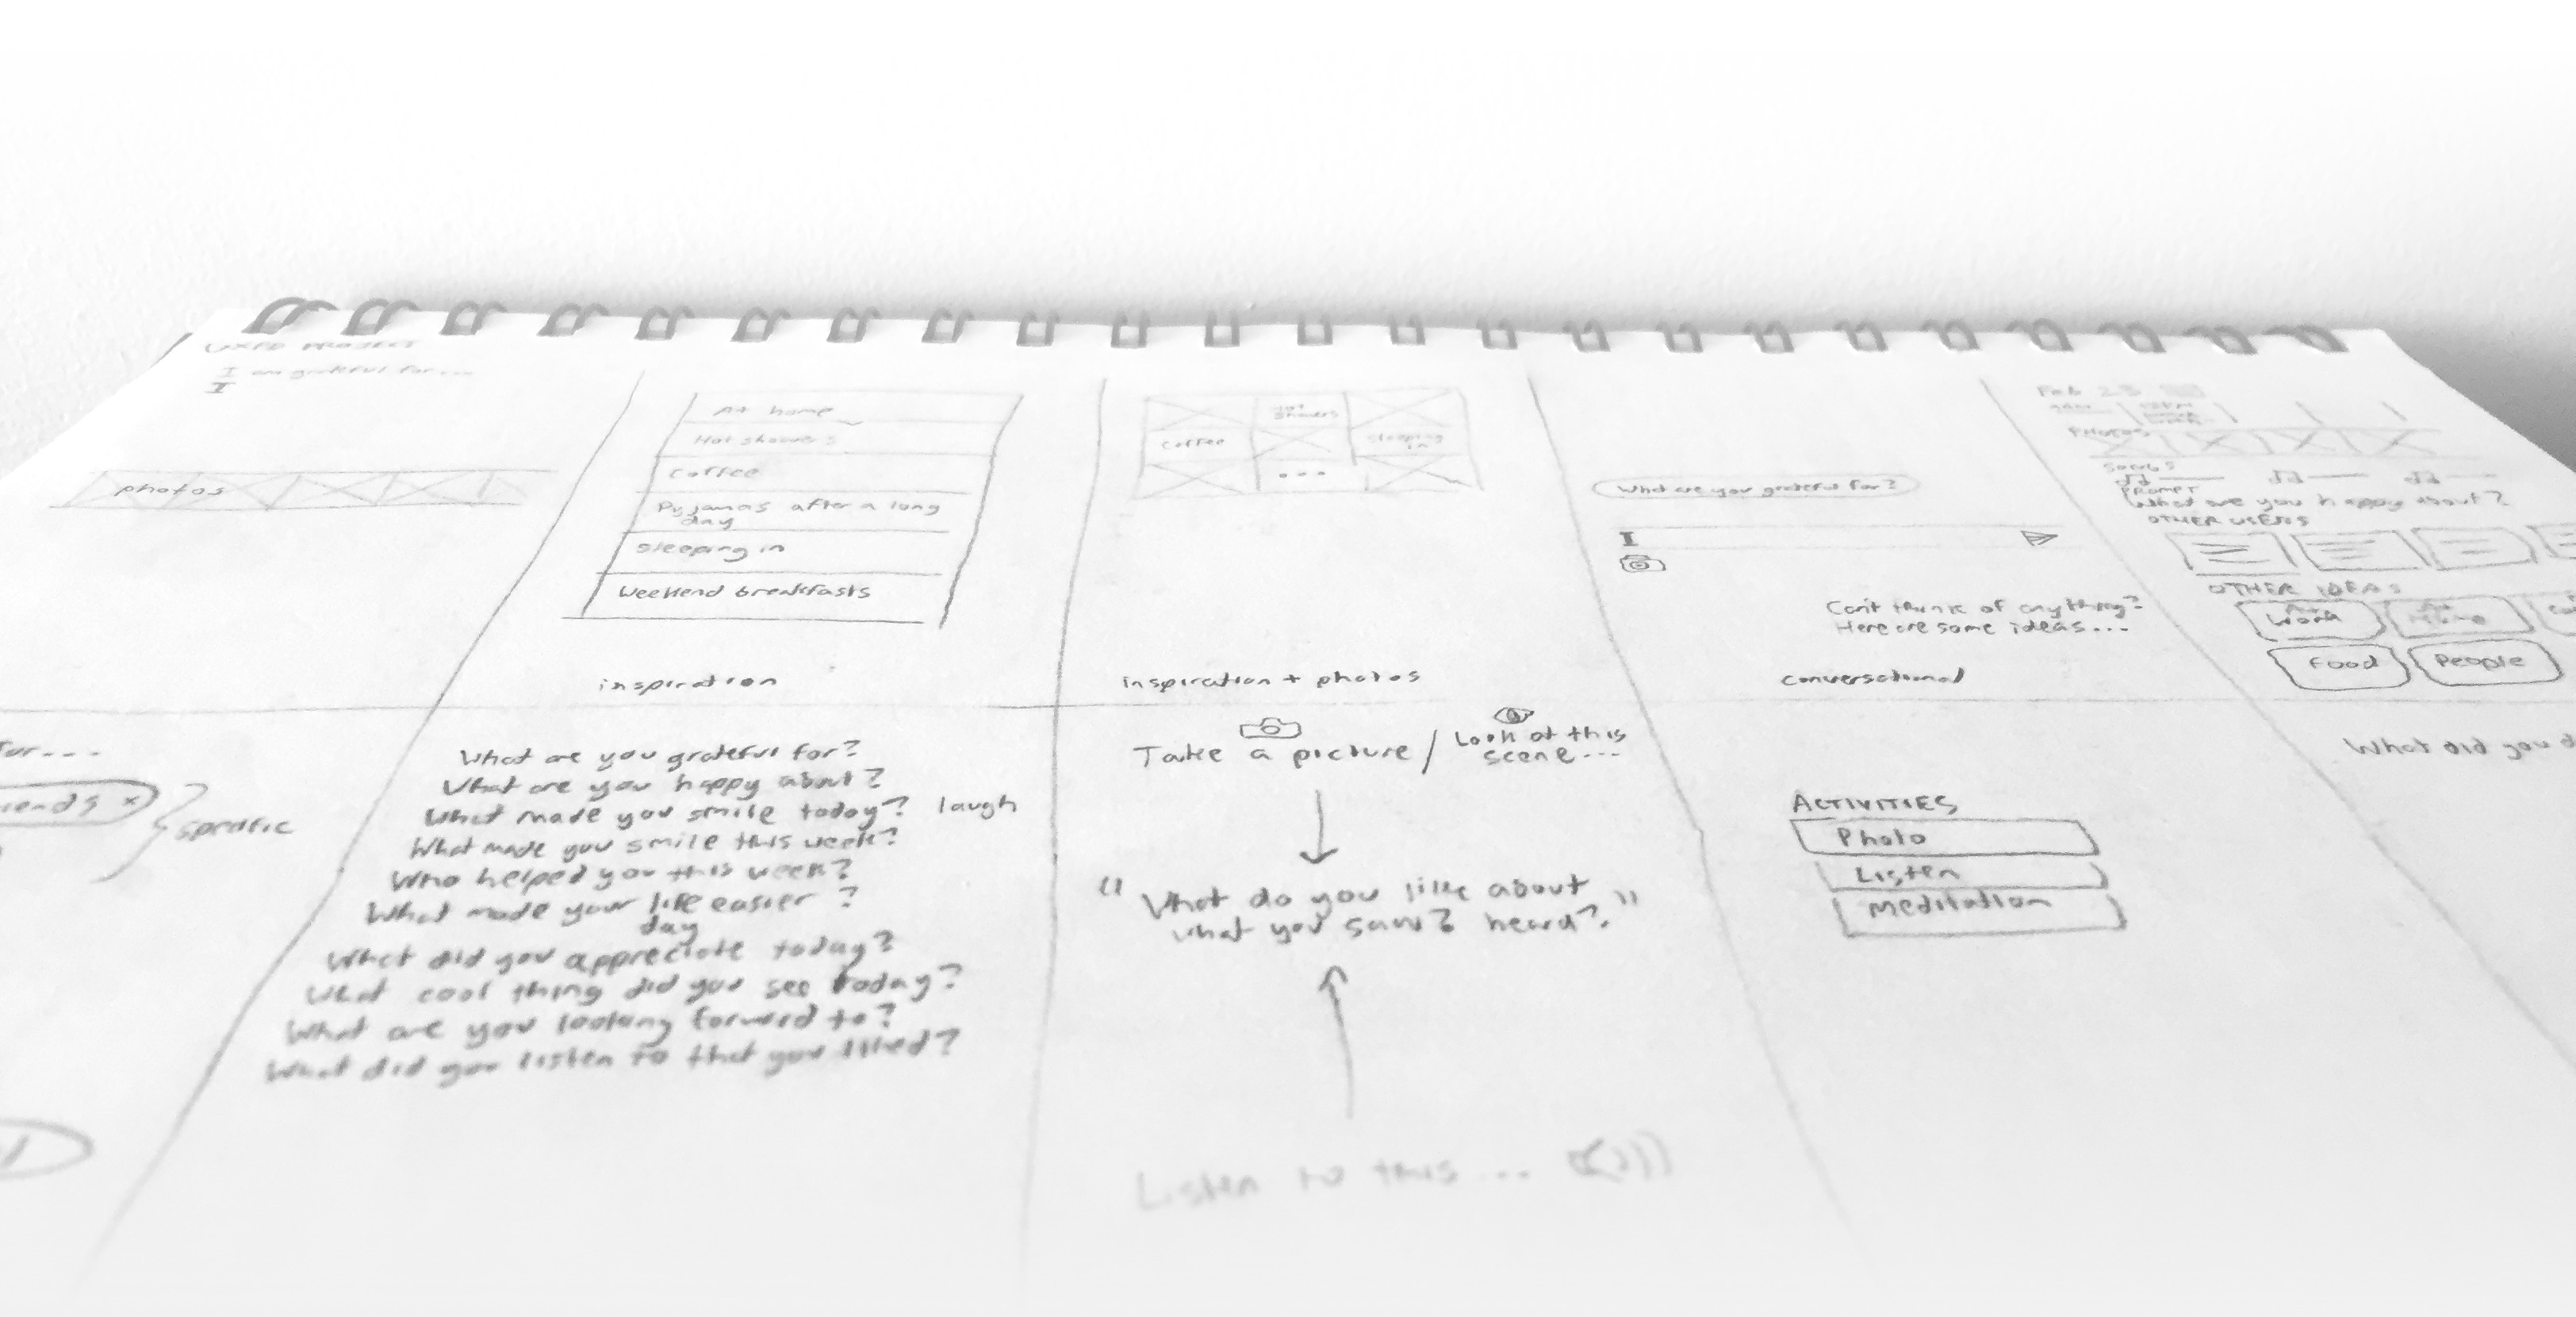 UXPD PROJECT
I am grateful for...
photos
At home
Hot showers
Coffee
Pyjamas after a long
day
Sleeping in
Weekend breakfasts
inspiration
Hot
Showers
Coffee
Sleeping
in
...
inspiration + photos
What are you grateful for?
Can't think of anything?
Here are some ideas...
conversational
Feb 23
PHOTOS
SONGS
PROMPT
What are you happy about?
OTHER USERS
OTHER IDEAS
At
Work
At
Home
Food
People
for...
iends x
specific
What are you grateful for?
What are you happy about?
What made you smile today? laugh
What made you smile this week?
Who helped you this week?
What made your life easier?
day
What did you appreciate today?
What cool thing did you see today?
What are you looking forward to?
What did you listen to that you liked?
Take a picture / Look at this
scene...
"What do you like about
what you saw? heard?"
Listen to this...
ACTIVITIES
Photo
Listen
Meditation
What did you d